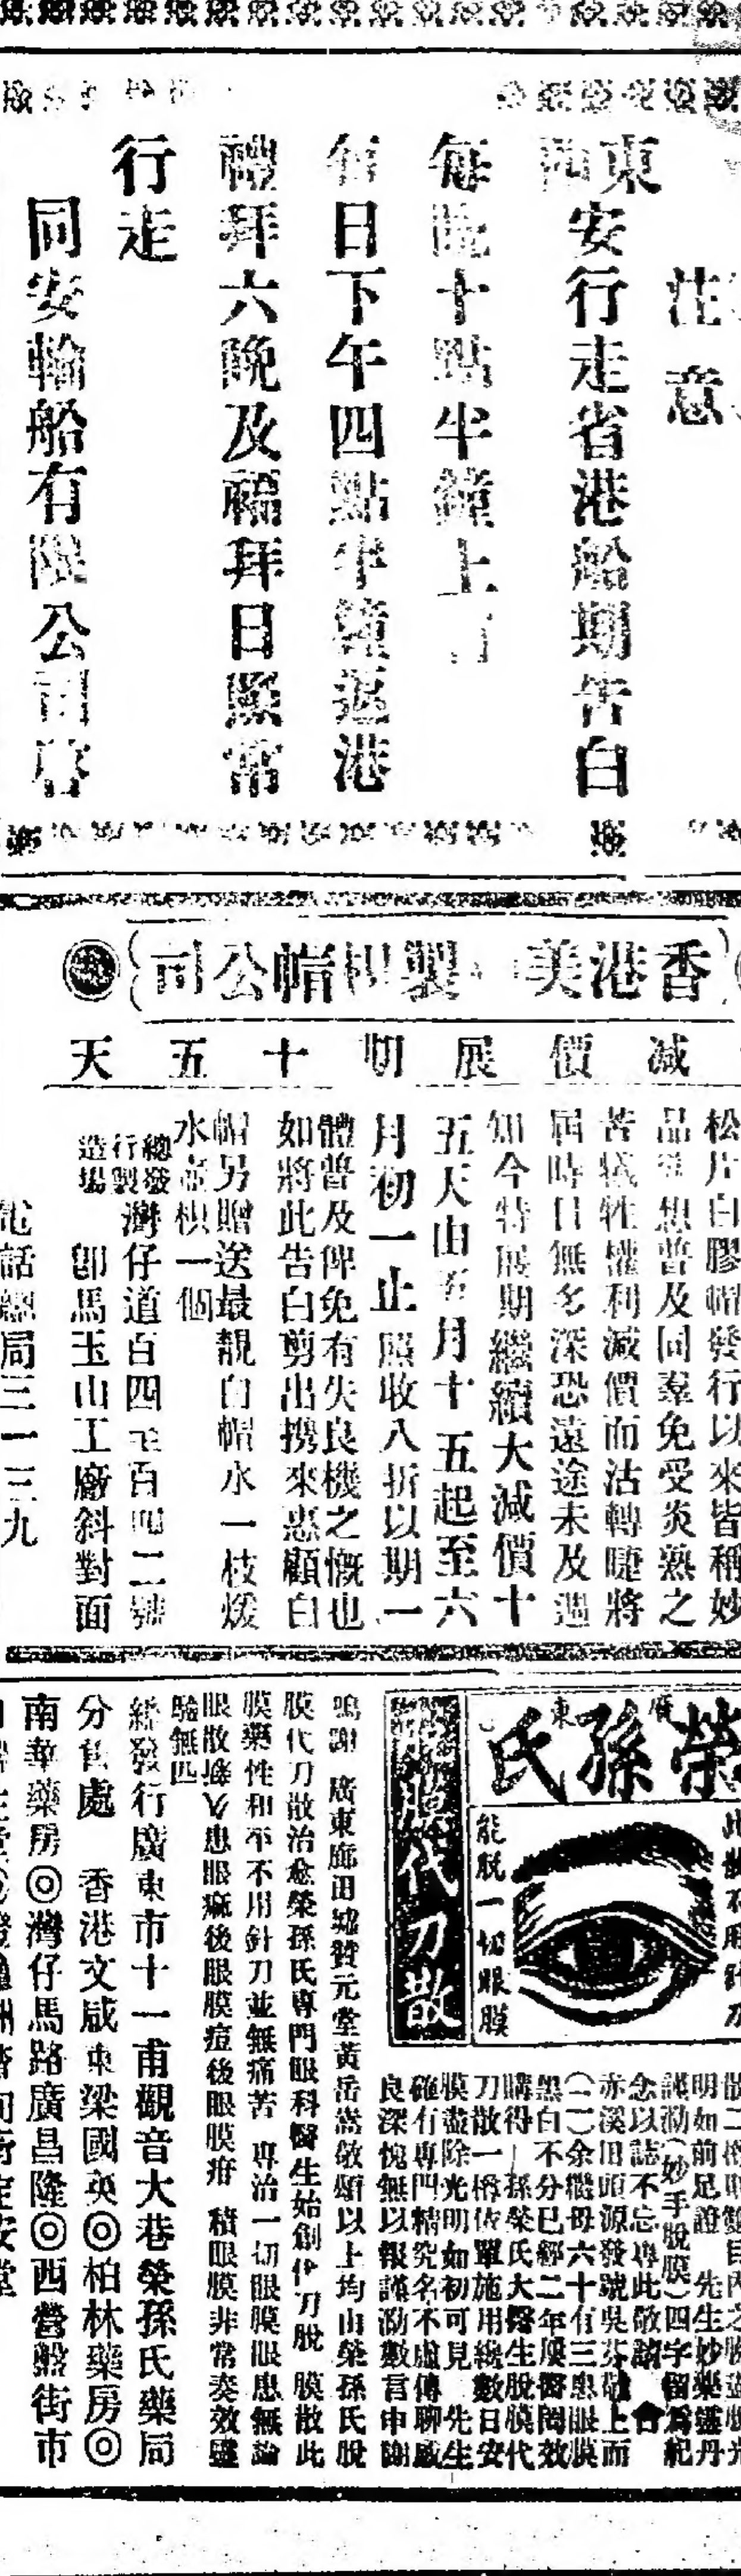 注意
東安行走省港船期告白
每晚十點半鐘上省
每日下午四點半鐘返港
禮拜六晚及禮拜日照常
行走
同安輪船有限公司啓
香港美製帽公司
減價展期十五天
松片白膠帽發行以來皆稱妙
品想普及同羣免受炎熱之
苦犧牲權利減價而沽轉睫將
屆時日無多深恐遠途未及週
知今特展期繼續大減價十
五天由五月十五起至六
月初一止照收八折以期一
體普及俾免有失良機之慨也
如將此告白剪出携來惠顧白
帽另贈送最靚白帽水一枝煖
水壺枳一個
總發行製造場
灣仔道百四至百四二號
卽馬玉山工廠斜對面
電話總局三一三九
廣東
榮孫氏
能脫一切眼膜
眼膜代刀散
明如前足證 先生妙藥靈丹
謹泐(妙手脫膜)四字留爲紀
念以誌不忘專此敬請
赤溪田頭源發號吳芬敬上而
(二)余繼母六十有三患眼膜
黑白不分已經二年屢醫罔效
購得孫榮氏大醫生脫膜代
刀散一樽依單施用纔數日安
膜盡除光明如初可見 先生
確有專門精究名不虛傳聊感
良深愧無以報謹泐數言申謝
鳴謝 廣東廊田墟贊元堂黃岳嵩敬頌以上均由榮孫氏脫
膜代刀散治愈榮孫氏專門眼科醫生始創代刀脫 膜散此
膜藥性和平不用針刀並無痛苦 專治一切眼膜眼患無論
眼散新久患眼痲後眼膜痘後眼膜疳 積眼膜非常奏效靈
驗無匹
總發行廣東市十一甫觀音大巷榮孫氏藥局
分售處 香港文咸東梁國英◎柏林藥房◎
南華藥房◎灣仔馬路廣昌隆◎西營盤街市